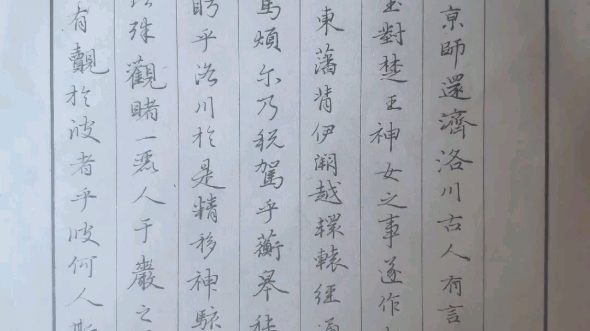 京師還濟洛川古人有言
對楚王神女之事遂作
東藩背伊闕越轘轅經通
馬煩尔乃税駕乎蘅皋秣
眄乎洛川於是精移神駭
殊觀睹一丽人于巖之
有觀於彼者乎彼何人斯